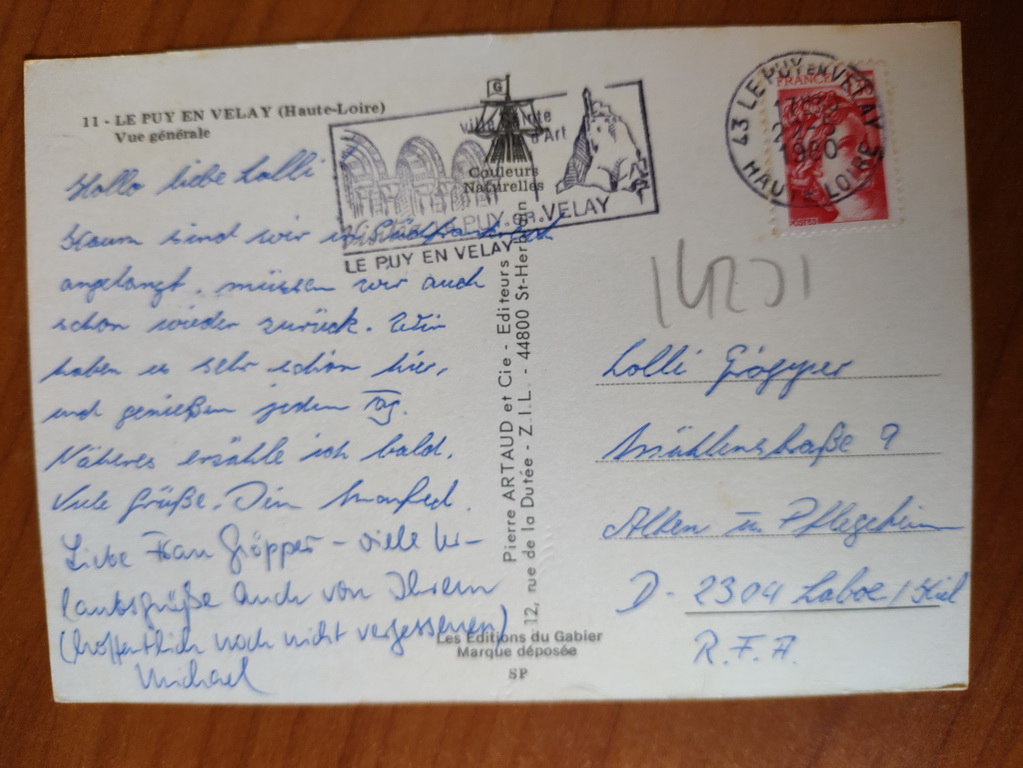 11 - LE PUY EN VELAY (Haute-Loire)
Vue générale
Hallo liebe Lolli
Kaum sind wir in Südfrankreich
angelangt, müssen wir auch
schon wieder zurück. Wir
haben es sehr schön hier,
und genießen jeden Tag.
Näheres erzähle ich bald.
Viele Grüße. Dein Manfred.
Liebe Frau Gröpper - viele Ur-
laubsgrüße auch von Ihrem
(hoffentlich noch nicht vergessenen)
Michael
G
Couleurs
Naturelles
ville Sainte
d'Art
LE PUY en VELAY
LE PUY EN VELAY
Pierre ARTAUD et Cie - Editeurs
12, rue de la Dutée - Z.I.L. - 44800 St-Herblain
Les Editions du Gabier
Marque déposée
SP
43 LE PUY EN VELAY
1980
HAUTE LOIRE
FRANCE
POSTES
Lolli Gröpper
Mühlenstraße 9
Alten u Pflegeheim
D - 2304 Laboe / Kiel
R.F.A.